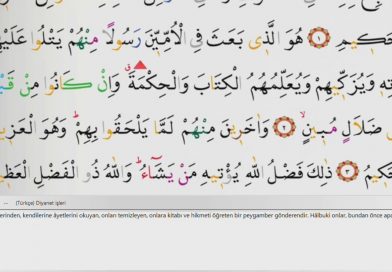 حَكِيمِ ۝١ هُوَ الَّذِي بَعَثَ فِي الْأُمِّيِّنَ رَسُولًا مِنْهُمْ يَتْلُوا عَلَيْهِ
تِهِ وَيُزَكِّيهِمْ وَيُعَلِّمُهُمُ الْكِتَابَ وَالْحِكْمَةَ وَإِنْ كَانُوا مِنْ قَبْ
ضَلَالٍ مُبِينٍ ۝٢ وَآخَرِينَ مِنْهُمْ لَمَّا يَلْحَقُوا بِهِمْ وَهُوَ الْعَزِي
كِيمُ ۝٣ ذٰلِكَ فَضْلُ اللّٰهِ يُؤْتِيهِ مَنْ يَشَاءُ وَاللّٰهُ ذُو الْفَضْلِ الْعَظِ
(Türkçe) Diyanet işleri
lerinden, kendilerine âyetlerini okuyan, onları temizleyen, onlara kitabı ve hikmeti öğreten bir peygamber gönderendir. Hâlbuki onlar, bundan önce apa